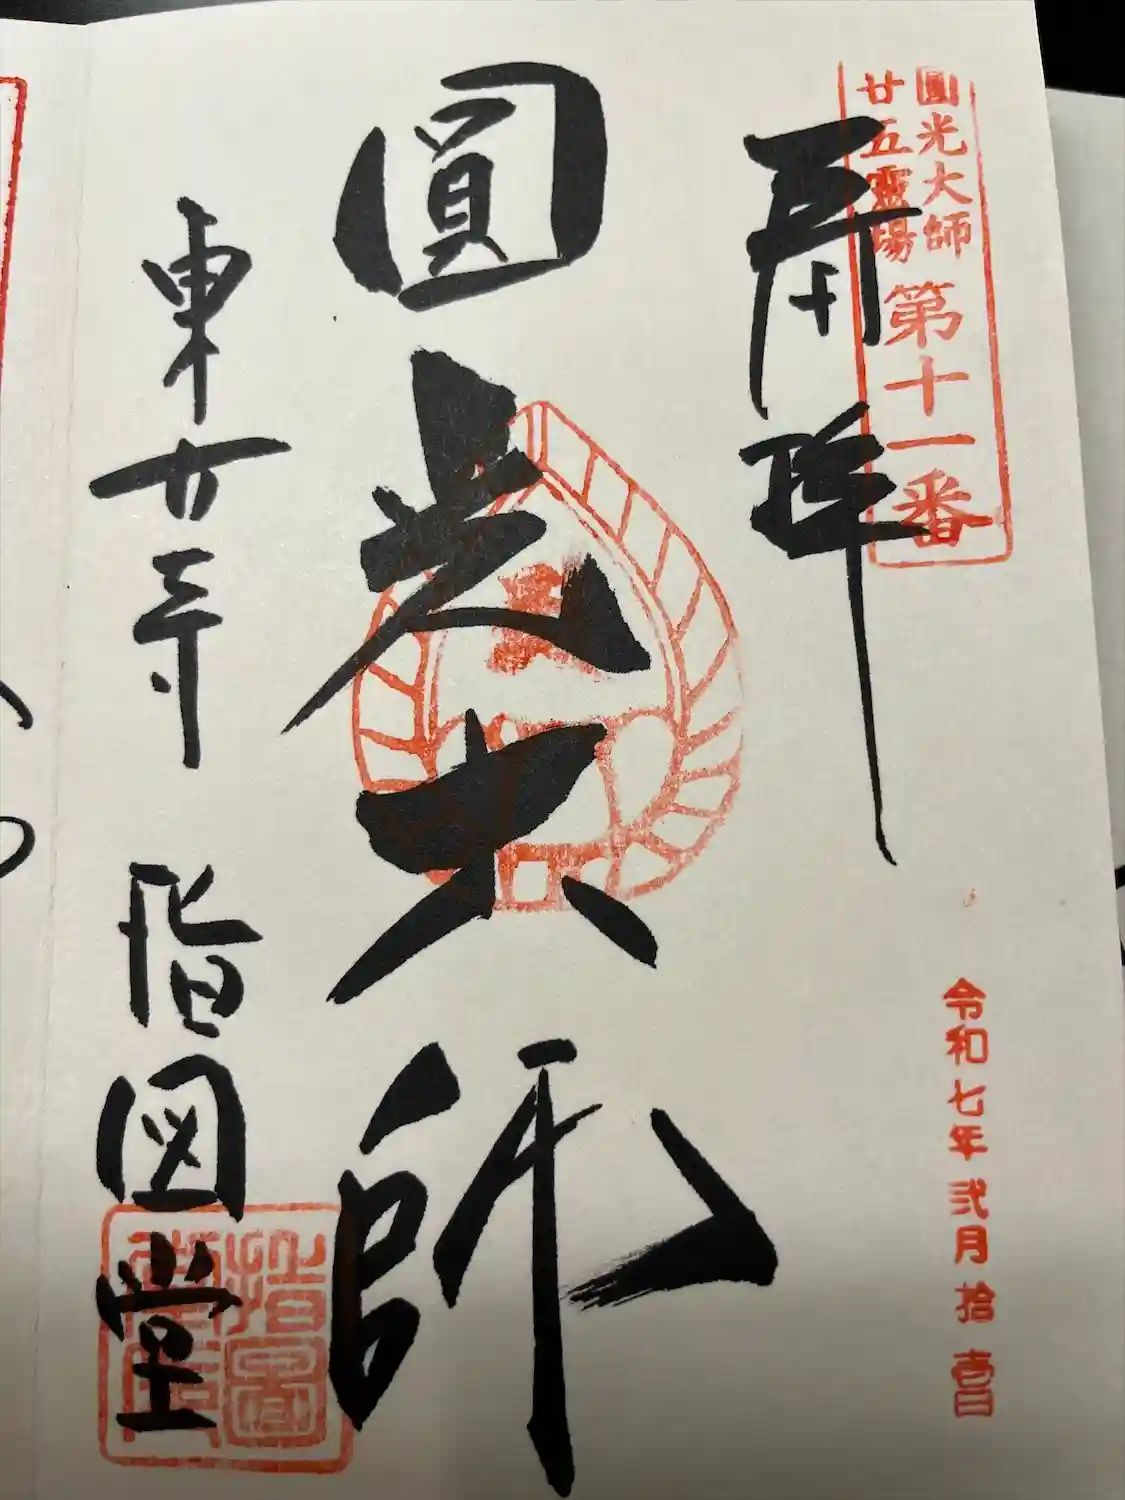 圓光大師
廿五靈場
第十一番
奉拝
令和七年弐月拾壱日
圓光大師
東大寺
指図堂